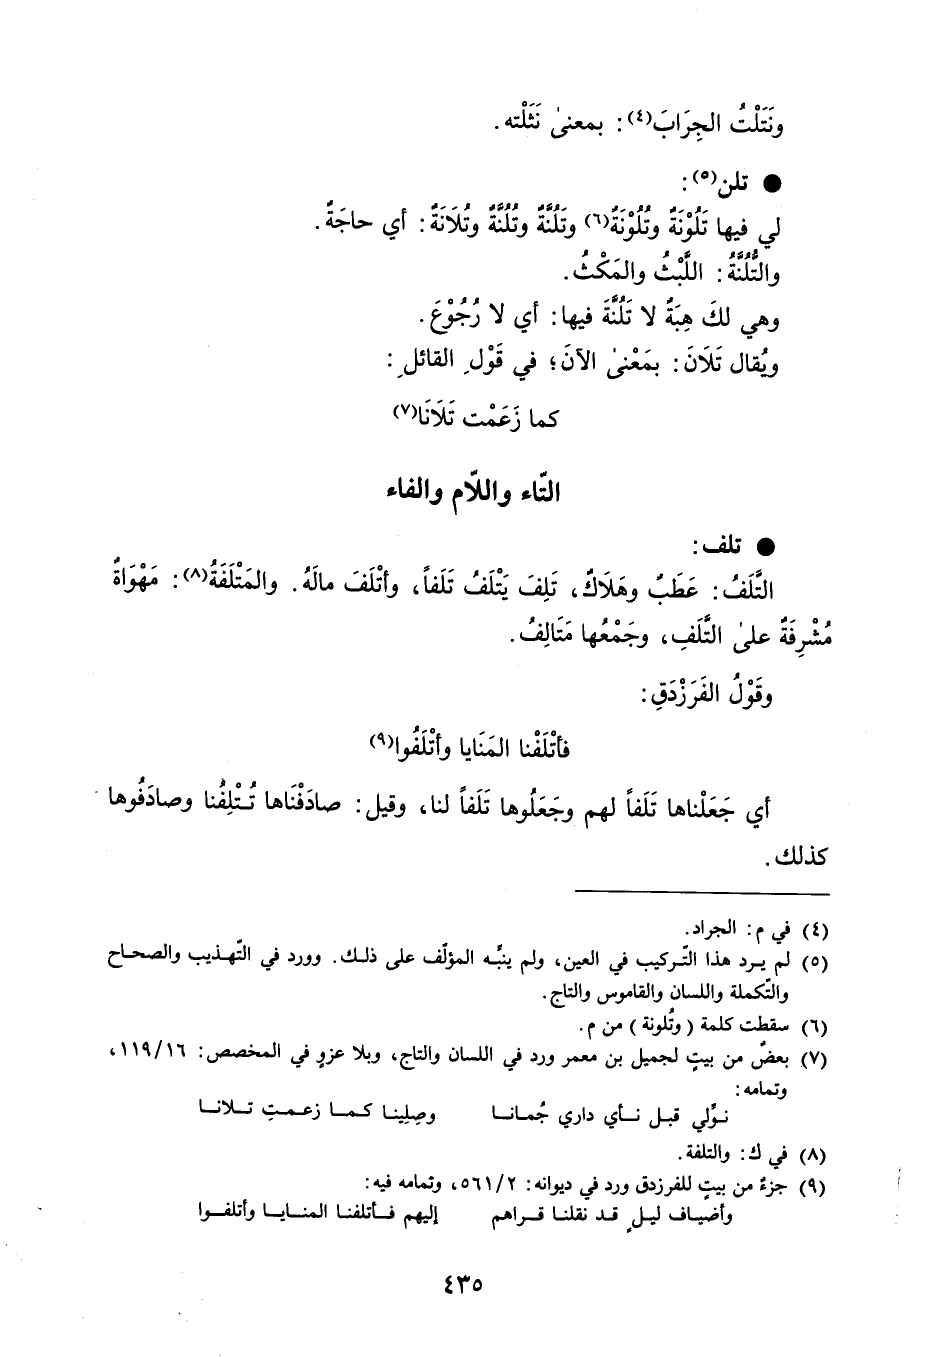 ونَتَلْتُ الجِرَابَ(٤): بمعنىٰ نَثَلْته.
● تلن(٥):
لي فيها تَلُوْنَةٌ وتُلُوْنَةٌ(٦) وتَلُنَّةٌ وتُلُنَّةٌ وتُلَانَةٌ: أي حاجَةٌ.
والتُّلُنَّةُ: اللَّبْثُ والمَكْثُ.
وهي لكَ هِبَةٌ لا تَلُنَّةَ فيها: أي لا رُجُوْعَ.
ويُقال تَلَانَ: بمَعْنىٰ الآنَ؛ في قَوْلِ القائلِ:
كما زَعَمْت تَلَانَا(٧)
التّاء واللّام والفاء
● تلف:
التَّلَفُ: عَطَبٌ وهَلَاكٌ، تَلِفَ يَتْلَفُ تَلَفاً، وأتْلَفَ مالَهُ. والمَتْلَفَةُ(٨): مَهْوَاةٌ
مُشْرِفَةٌ علىٰ التَّلَفِ، وجَمْعُها مَتَالِفُ.
وقَوْلُ الفَرَزْدَقِ:
فأتْلَفْنا المَنَايا وأتْلَفُوا(٩)
أي جَعَلْناها تَلَفاً لهم وجَعَلُوها تَلَفاً لنا، وقيل: صادَفْنَاها تُتْلِفُنا وصادَفُوها
كذلك.
(٤) في م: الجراد.
(٥) لم يرد هذا التّركيب في العين، ولم ينبِّه المؤلّف على ذلك. وورد في التّهذيب والصحاح
والتّكملة واللسان والقاموس والتاج.
(٦) سقطت كلمة (وتُلونة) من م.
(٧) بعضٌ من بيتٍ لجميل بن معمر ورد في اللسان والتاج، وبلا عزوٍ في المخصص: ١١٩/١٦،
وتمامه:
نوِّلي قبل نأي داري جُمانا وصِلِينا كما زعمتِ تلانا
(٨) في ك: والتلفة.
(٩) جزءٌ من بيتٍ للفرزدق ورد في ديوانه: ٥٦١/٢، وتمامه فيه:
وأضياف ليلٍ قد نقلنا قراهم إليهم فأتلفنا المنايا وأتلفوا
٤٣٥